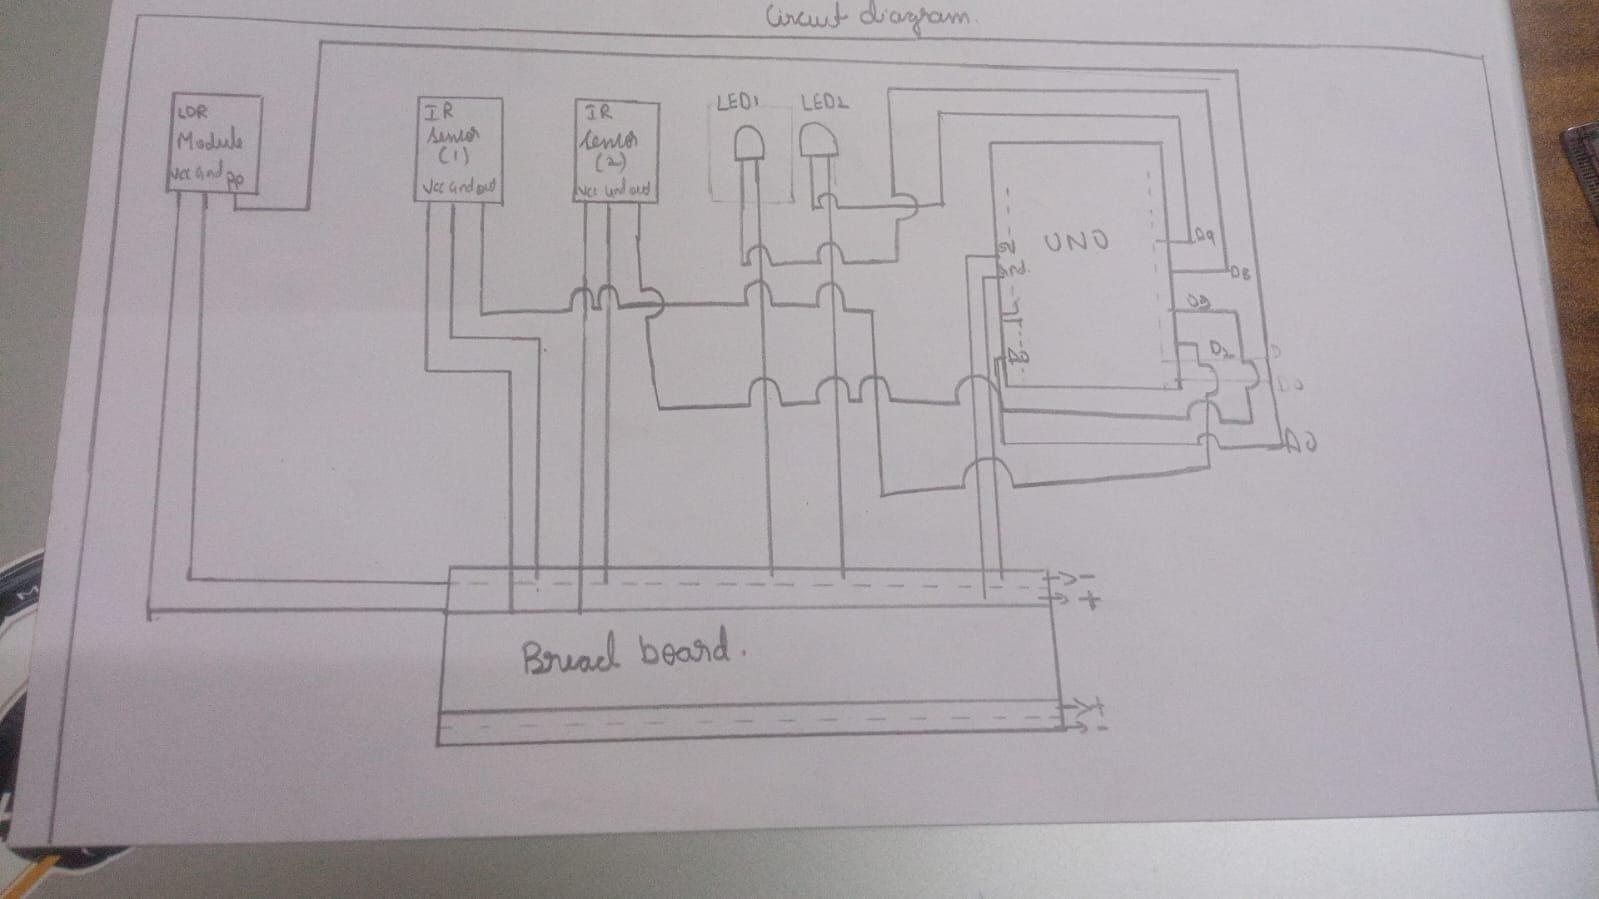 Circuit diagram.
LDR
Module
Vcc Gnd A0
IR
sensor
(1)
Vcc Gnd out
IR
sensor
(2)
Vcc Gnd out
LED1
LED2
UNO
5V
Gnd
A0
D9
D8
D3
D2
D
D0
A0
-
+
Bread board.
+
-